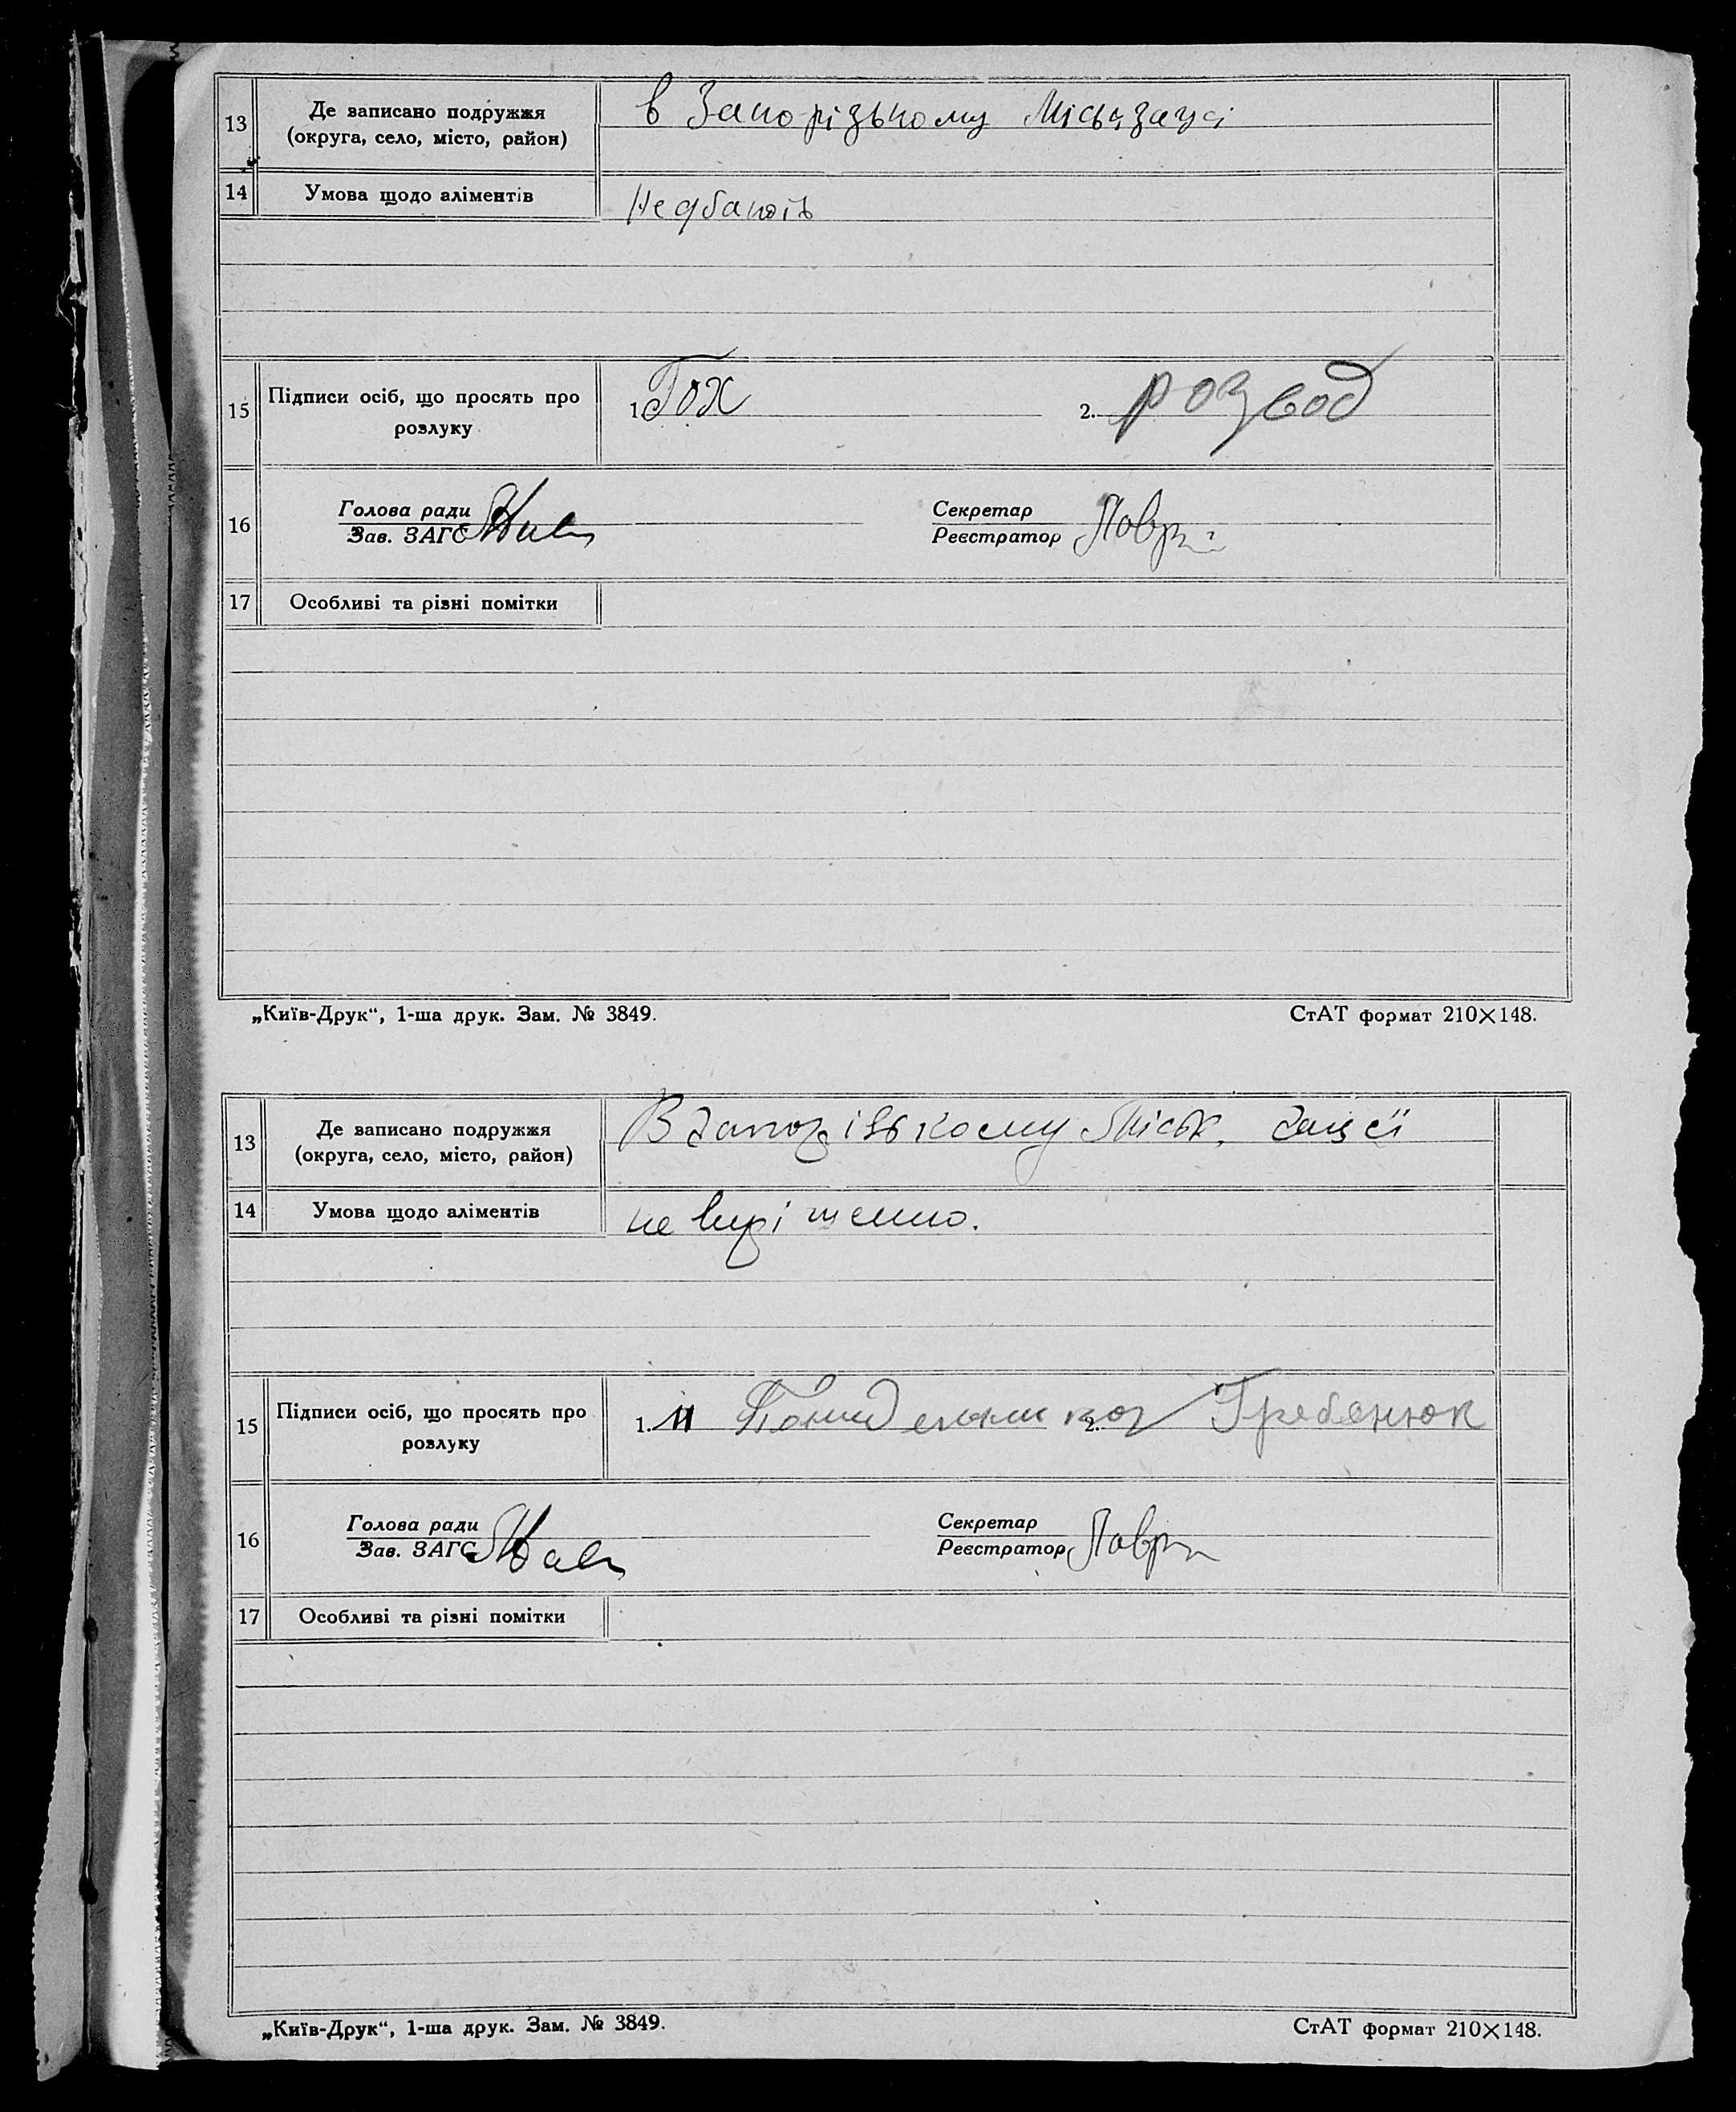 13 Де записано подружжя (округа, село, місто, район) в Запорізькому Міськзагсі
14 Умова щодо аліментів Не дбають
15 Підписи осіб, що просять про розлуку 1. Гох 2. розвод
16 Голова ради Зав. ЗАГС Секретар Реєстратор
17 Особливі та різні помітки
„Київ-Друк“, 1-ша друк. Зам. № 3849. СтАТ формат 210×148.
13 Де записано подружжя (округа, село, місто, район) В Запорізькому Міськ. загсі
14 Умова щодо аліментів не вирішенно.
15 Підписи осіб, що просять про розлуку 1. 2. Гребенюк
16 Голова ради Зав. ЗАГС Секретар Реєстратор
17 Особливі та різні помітки
„Київ-Друк“, 1-ша друк. Зам. № 3849. СтАТ формат 210×148.